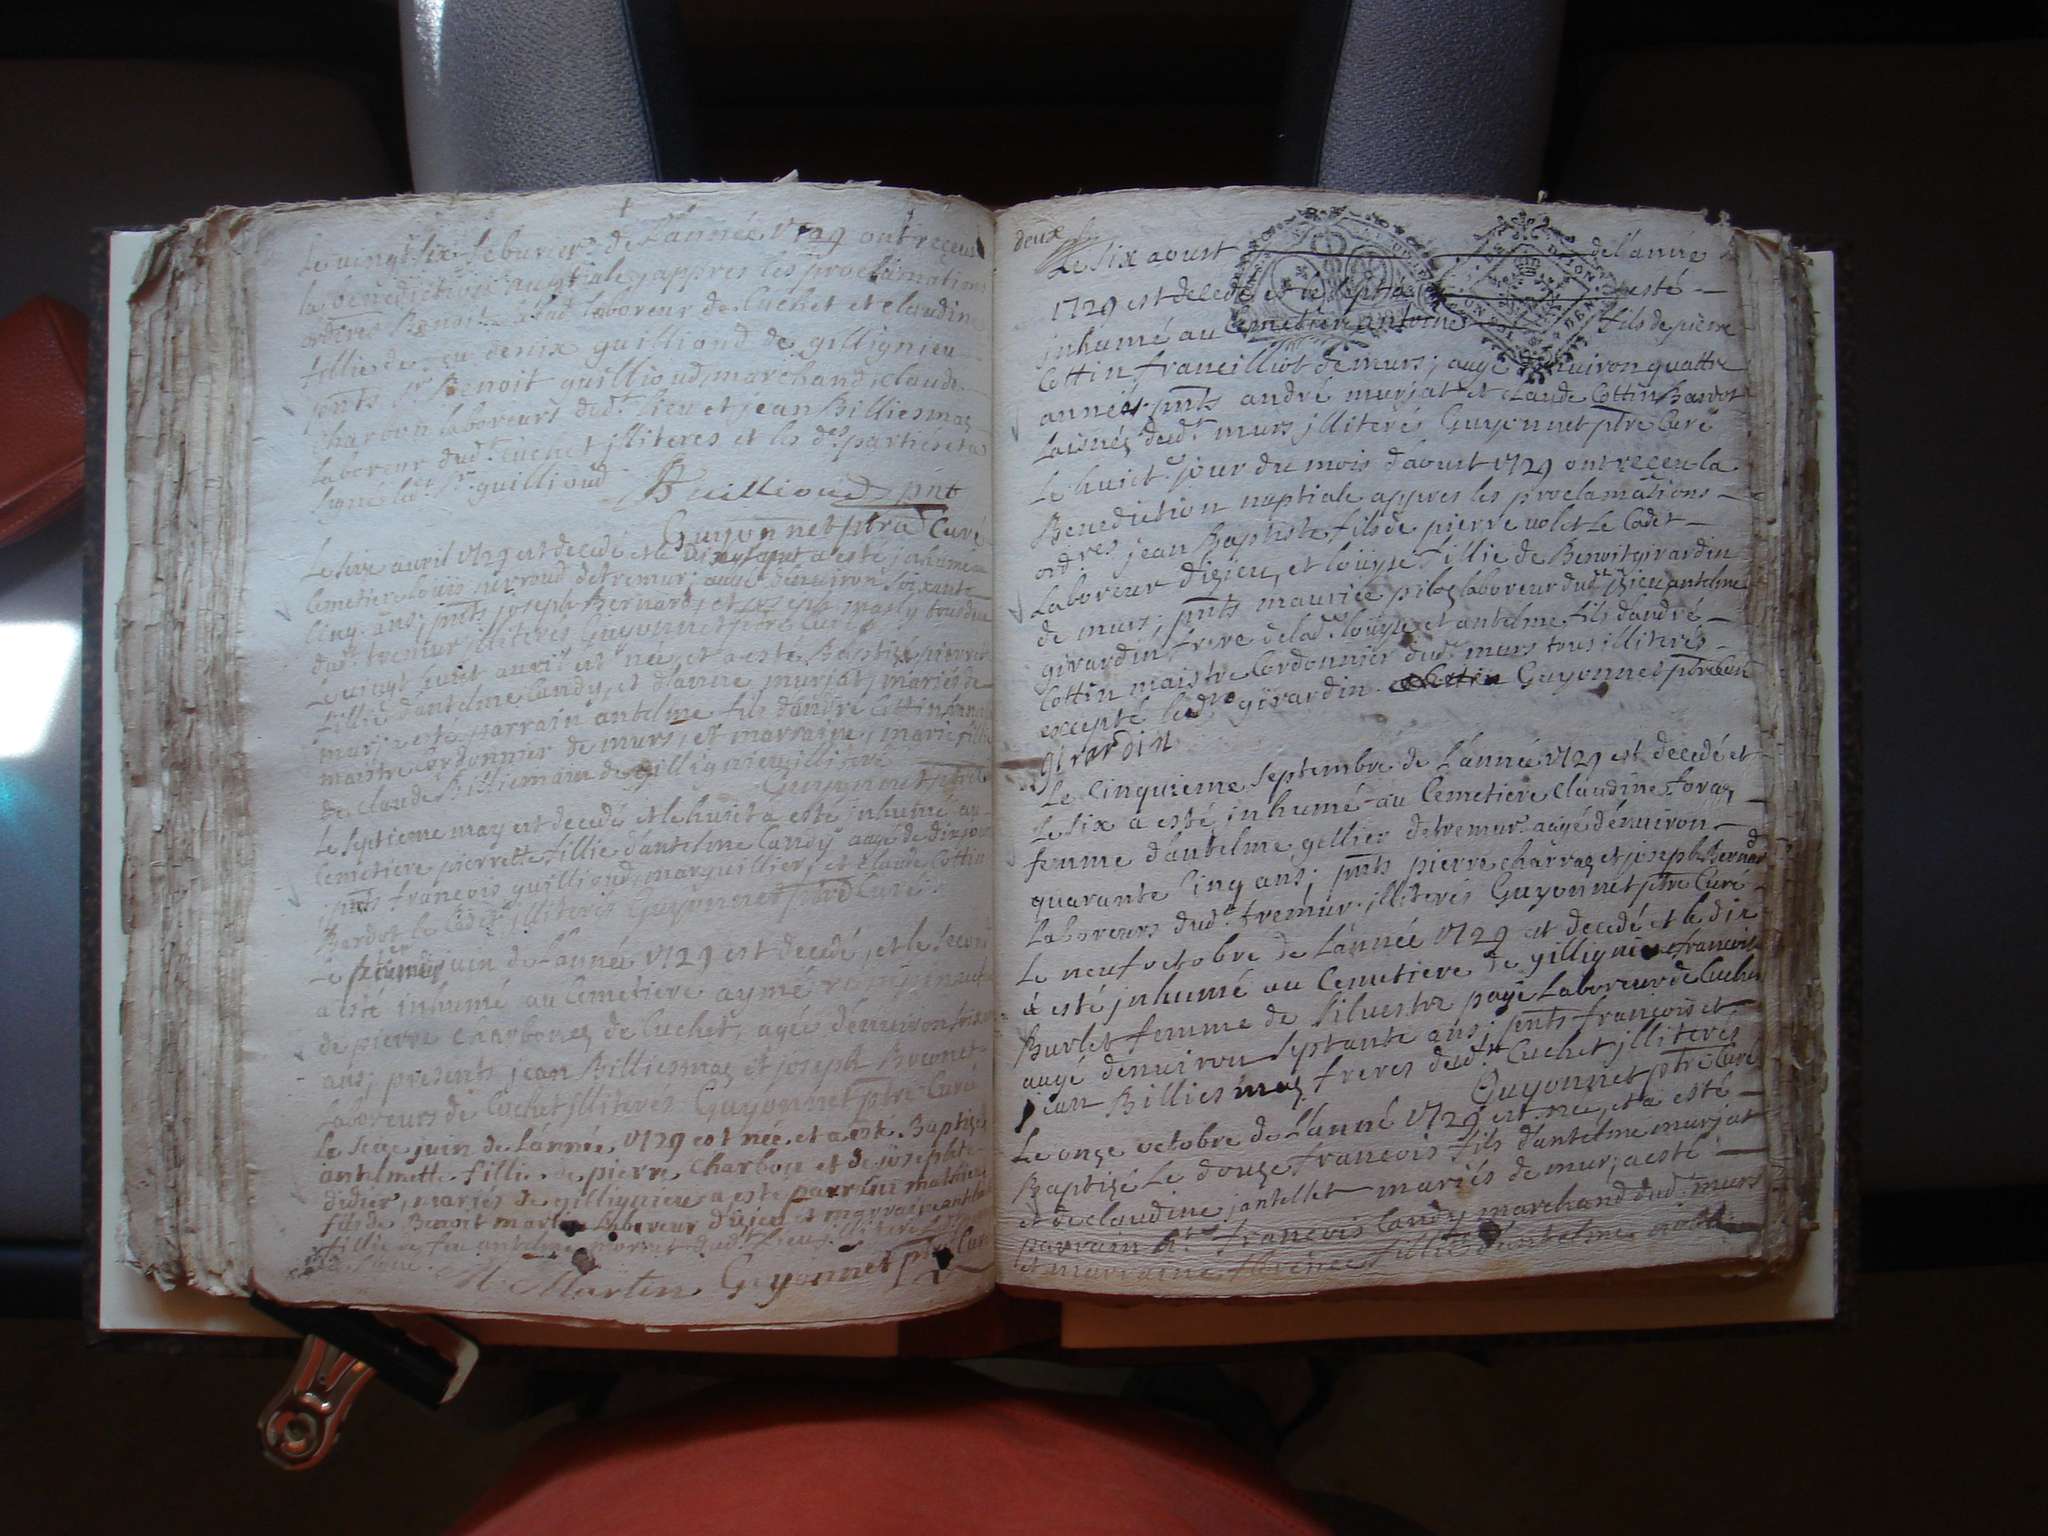 Le vingt six feburier de l'année 1729 ont receu
la benediction nuptiale, appres les proclamations
ordres Benoit laboreur de Cuchet et claudine
fillie de feu denix guilliond de gillignieu
pnts sr Benoit guillioud, marchand, claude
charbon laboreurs dudt lieu et jean Billiemaz
laboreur dudt Cuchet jlliteres et les des parties et a
signé led sr guillioud Guillioud pnt
Guyonnet ptre Curé
Le six avril 1729 est decedé et le a este jnhumé au
Cemetiere louis de tremur, augé d'enuiron soixante
Cinq ans; pnts joseph Bernard, et joseph tous deux
dudt tremur jlliterés Guyonnet ptre Curé
Le vingt huict avril est née, et a este Baptisé pierrette
fillie d'antelme Candy, et d'anne murjat, mariés de
murs; a esté parrain antelme fils d'andre Cottin
maistre Cordonnier de murs, et marraine, marie fillie
de claude Billiemain de gillignieu jlliteré
Guyonnet ptre
Le septieme may est decedé et le huict a esté jnhumé au
Cemetiere pierrette fillie d'antelme Candy augé de dix jours
pnts francois guillioud, marguillier, et claude Cottin
Bardot le Cadet jlliterés Guyonnet ptre Curé
Le premier juin de L'année 1729 est decedé, et le second
a esté inhumé au Cemetiere aymé
de pierre charbonez de Cuchet, agée d'enuiron
ans; presents jean Billiemaz et joseph
laboreurs de Cuchet jlliterés Guyonnet ptre Curé
Le seze juin de L'année 1729 est née et a esté Baptizé
antelmette fillie de pierre Charbon et de josephte
didier, mariés de gillignieu a esté parrain mathieu
fils de Benoit martin Laboreur d'izieu et marraine
fillie de feu antelme dudt Lieu jlliteré
M Martin Guyonnet ptre Curé
deux
Le six aoust de l'année
1729 est decedé et le sept a esté
jnhumé au Cemetiere antoine fils de pierre
Cottin francilliot de murs; augé d'enuiron quattre
années, pnts andré murjat et claude Cottin Bardot
Laisnéz dudt murs jlliterés Guyonnet ptre Curé
Le huict jour du mois d'aoust 1729 ont receu la
Benediction nuptiale appres les proclamations
ordres jean Baptiste fils de pierre uolet Le Cadet
Laboreur d'izieu, et loüyse fillie de Benoit girardin
de murs; pnts maurice piloz laboreur dudt jzieu antelme
girardin, frere de lade loüyse et antelme fils d'andré
Cottin maistre Cordonnier dudt murs tous illiterés
excepté ledt girardin Guyonnet ptre Curé
girardin
Le Cinquieme septembre de L'année 1729 est decedé et
Le six a esté inhumé au Cemetiere Claudine foraz
femme d'antelme gellier de tremur augé d'enuiron
quarante Cinq ans; pnts pierre charraz et joseph Bernard
Laboreurs dudt tremur jlliterés Guyonnet ptre Curé
Le neuf octobre de L'année 1729 est decedé et le dix
a esté jnhumé au Cemetiere de gillignieu francoise
Burlet femme de siluestre payé Laboreur de Cuchet
augé d'enuiron septante ans; pnts francois et
jean Billiemaz freres dudt Cuchet jlliterés
Guyonnet ptre Curé
Le onze octobre de L'anné 1729 est née, et a esté
Baptizé Le douze francois fils d'antelme murjat
et de claudine jantellet mariés de mur; a esté
parrain francois Candy marchand dudt murs
et marraine fillie d'antelme